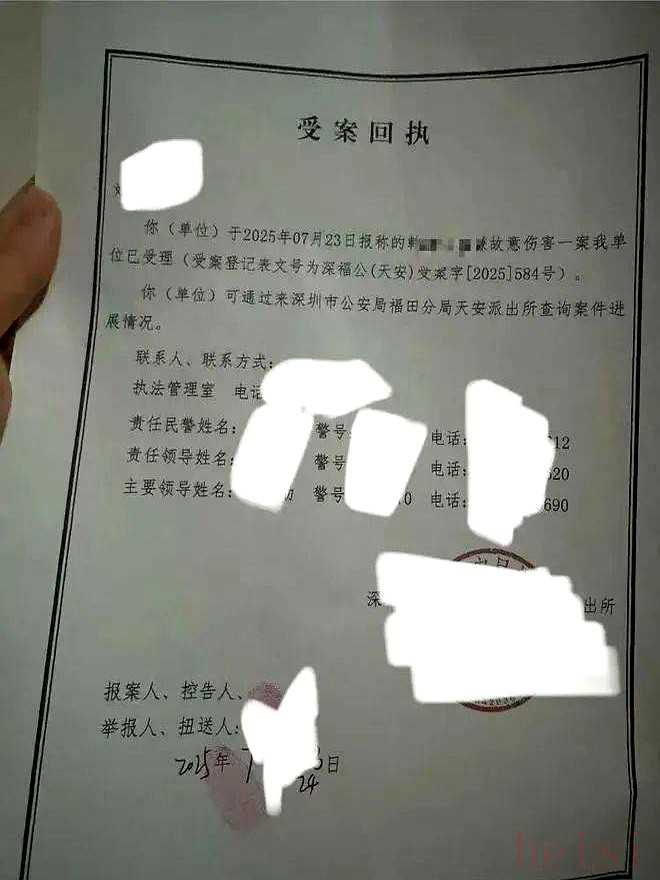 受案回执
你（单位）于2025年07月23日报称的 嫌故意伤害一案我单
位已受理（受案登记表文号为深福公(天安)受案字[2025]584号）。
你（单位）可通过来深圳市公安局福田分局天安派出所查询案件进
展情况。
联系人、联系方式：
执法管理室 电话
责任民警姓名： 警号 电话： 612
责任领导姓名： 警号 电话： 620
主要领导姓名： 警号 0 电话： 690
深 出所
报案人、控告人、
举报人、扭送人：
2025年7 日
24